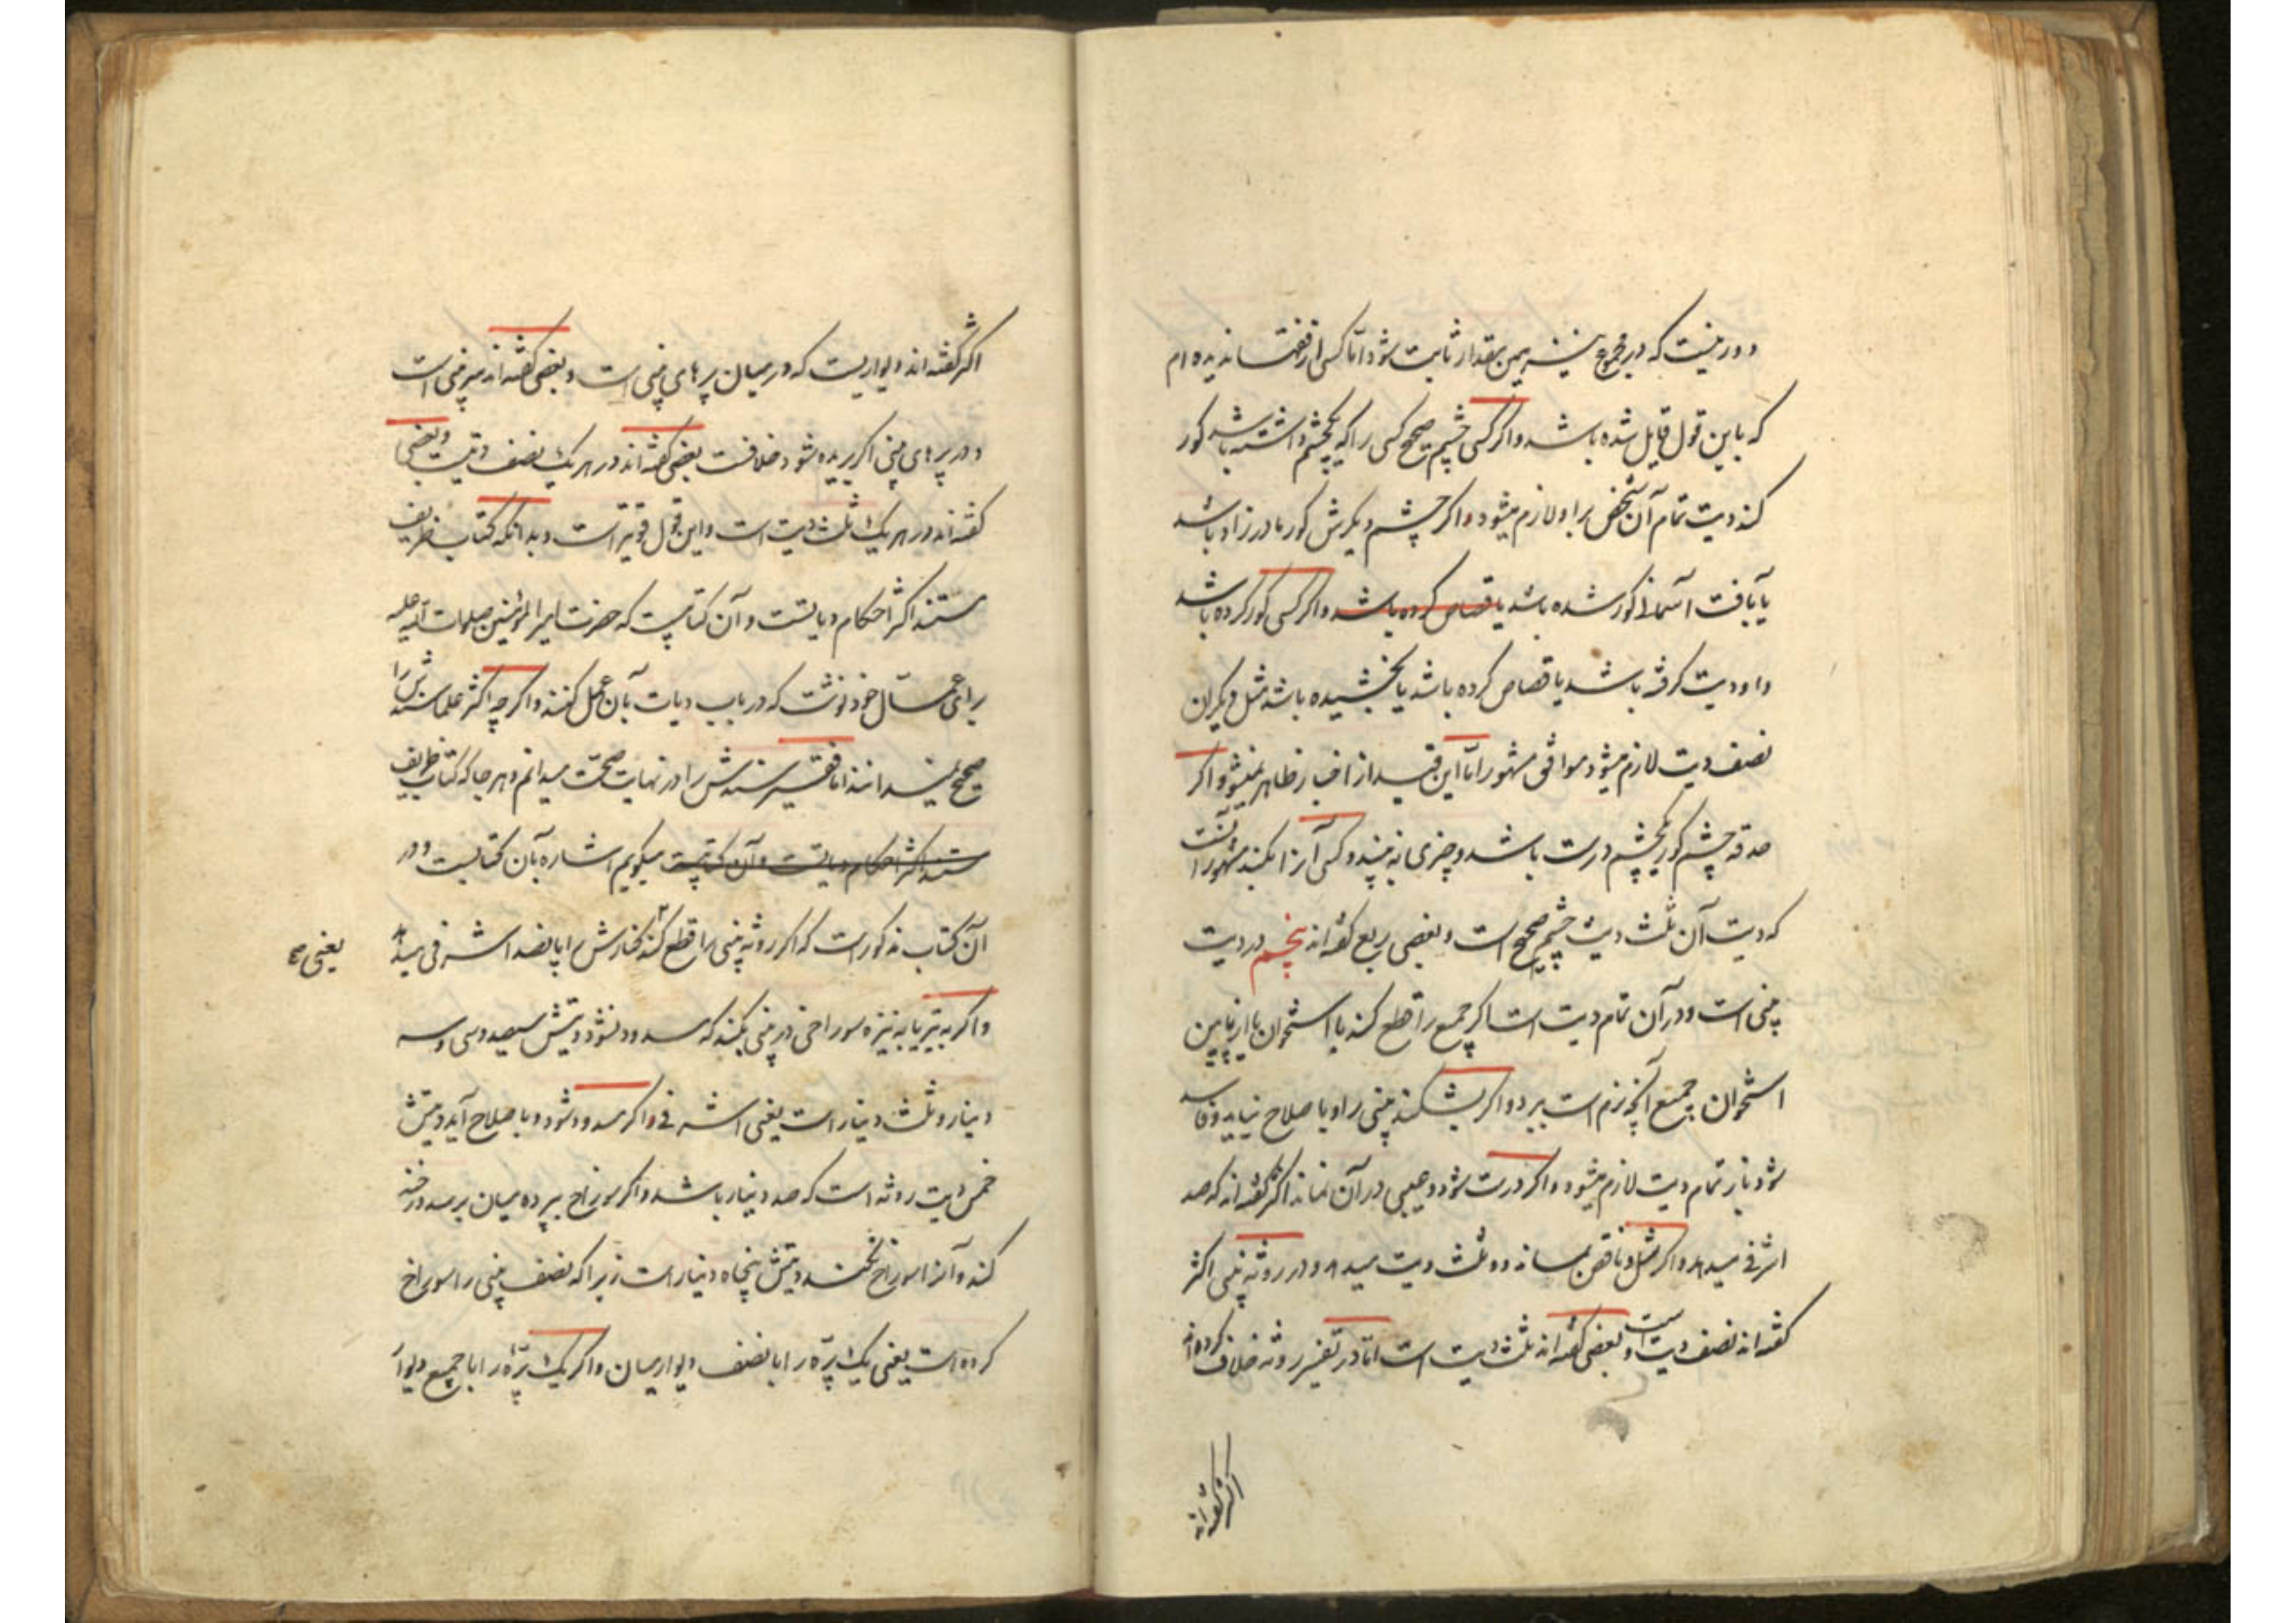 دور نیست که در مجموع نیز همین مقدار ثابت شود اما کسی از فقها ندیده ام
که باین قول قایل شده باشد و اگر کسی چشم صحیح کسی را که یکچشم داشته باشد کور
کند دیت تمام آن شخص بر او لازم میشود و اگر چشم دیگرش کور مادرزاد باشد
یا بآفت آسمانی کور شده باشد یا قصاص کرده باشد و اگر کسی کور کرده باشد
و او دیت گرفته باشد یا قصاص کرده باشد یا بخشیده باشد مثل دیگران
نصف دیت لازم میشود موافق مشهور اما این قید از اخبار ظاهر نمیشود و اگر
حدقه چشم کور یکچشم درست باشد و چیزی نه بیند و کسی آنرا بکند مشهور آنست
که دیت آن ثلث دیت چشم صحیح است و بعضی ربع گفته اند پنجم در دیت
بینی است و در آن تمام دیت است اگر جمیع را قطع کند با استخوان یا از پایین
استخوان جمیع آنچه نرم است ببرد و اگر بشکند بینی را و با صلاح نیاید و فاسد
شود باز تمام دیت لازم میشود و اگر درست شود و عیبی در آن نماند اکثر گفته اند که صد
اشرفی میدهد و اگر شل و ناقص بماند دو ثلث دیت میدهد و در روثه بینی اکثر
گفته اند نصف دیت است و بعضی گفته اند ثلث دیت است اما در تفسیر روثه خلاف کرده اند
اکثر گفته اند
اکثر گفته اند دیواریست که در میان پرهای بینی است و بعضی گفته اند سر بینی است
و در پرهای بینی اگر بریده شود خلافست بعضی گفته اند در هر یک نصف دیت و بعضی
گفته اند در هر یک ثلث دیت است و این قول قویتر است و بدانکه کتاب ظریف
مستند اکثر احکام دیاتست و آن کتابیست که حضرت امیر المؤمنین صلوات الله علیه
برای عمال خود نوشت که در باب دیات بآن عمل کنند و اگر چه اکثر علما سندش را
صحیح نمیدانند اما فقیر سندش را در نهایت صحت میدانم و هر جا که کتاب ظریف
مستند اکثر احکام دیاتست و آن کتابیست میگویم اشاره بآن کتابست و در
آن کتاب مذکور است که اگر روثه بینی را قطع کند کنارش را پانصد اشرفی میدهد
یعنی
و اگر به تیر یا به نیزه سوراخی در بینی بکند که مسدود نشود دیتش سیصد و سی و سه
دینار و ثلث دینار است یعنی اشرفی و اگر مسدود شود و با صلاح آید دیتش
خمس دیت روثه است که صد دینار باشد و اگر سوراخ بپرده میان برسد و رخنه
کند و آنرا سوراخ نکند دیتش پنجاه دینار است زیرا که نصف بینی را سوراخ
کرده است یعنی یک پره را با نصف دیوار میان و اگر یک پره را با جمیع دیوار